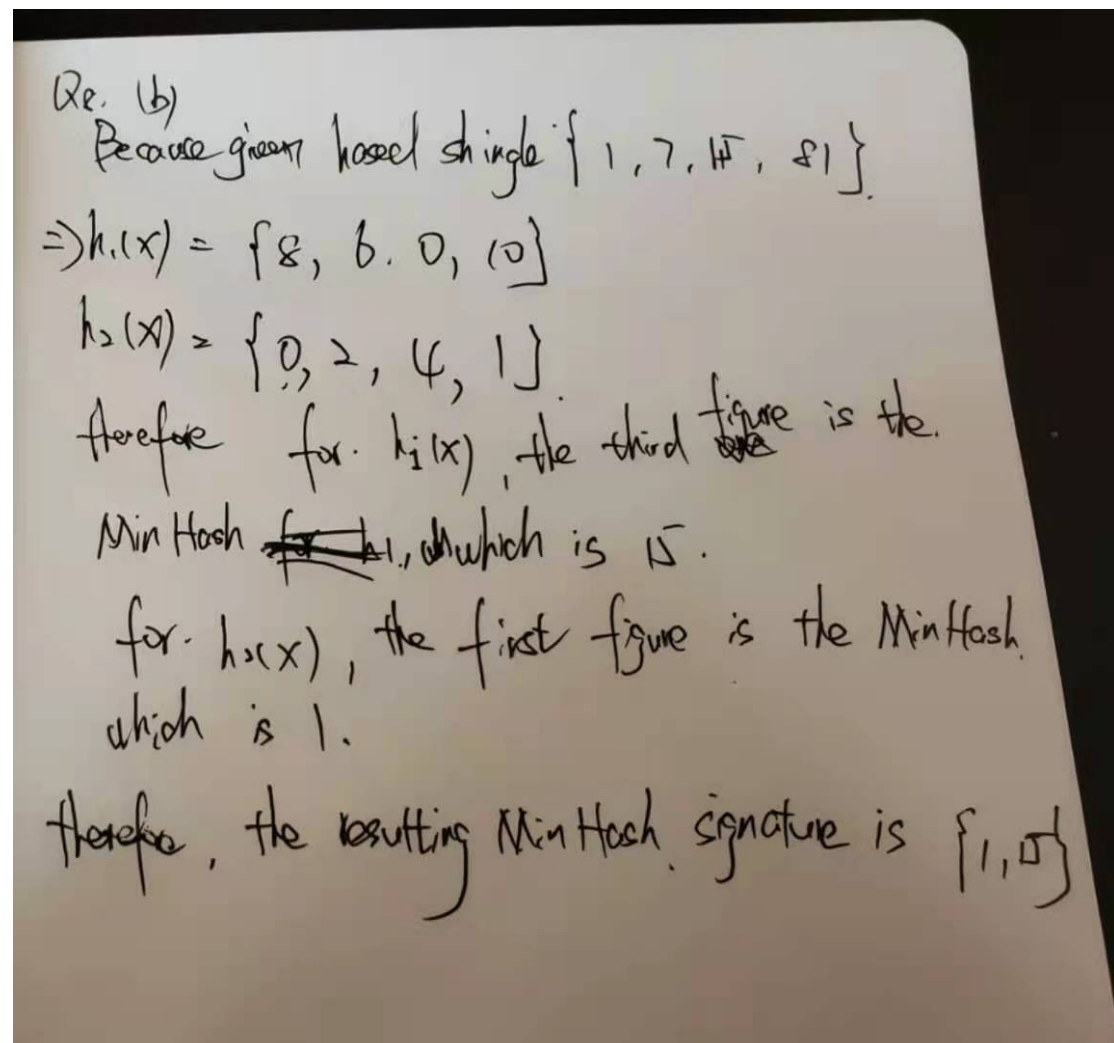 Q2. (b)
Because given hased shingle {1, 7, 15, 81}.
=> h1(x) = {8, 6. 0, 10}
h2(x) = {0, 2, 4, 1}.
therefore for. hi(x), the third figure is the.
Min Hash which is 15.
for. h2(x), the first figure is the MinHash.
which is 1.
therefore, the resulting Min Hash signature is {1, 15}